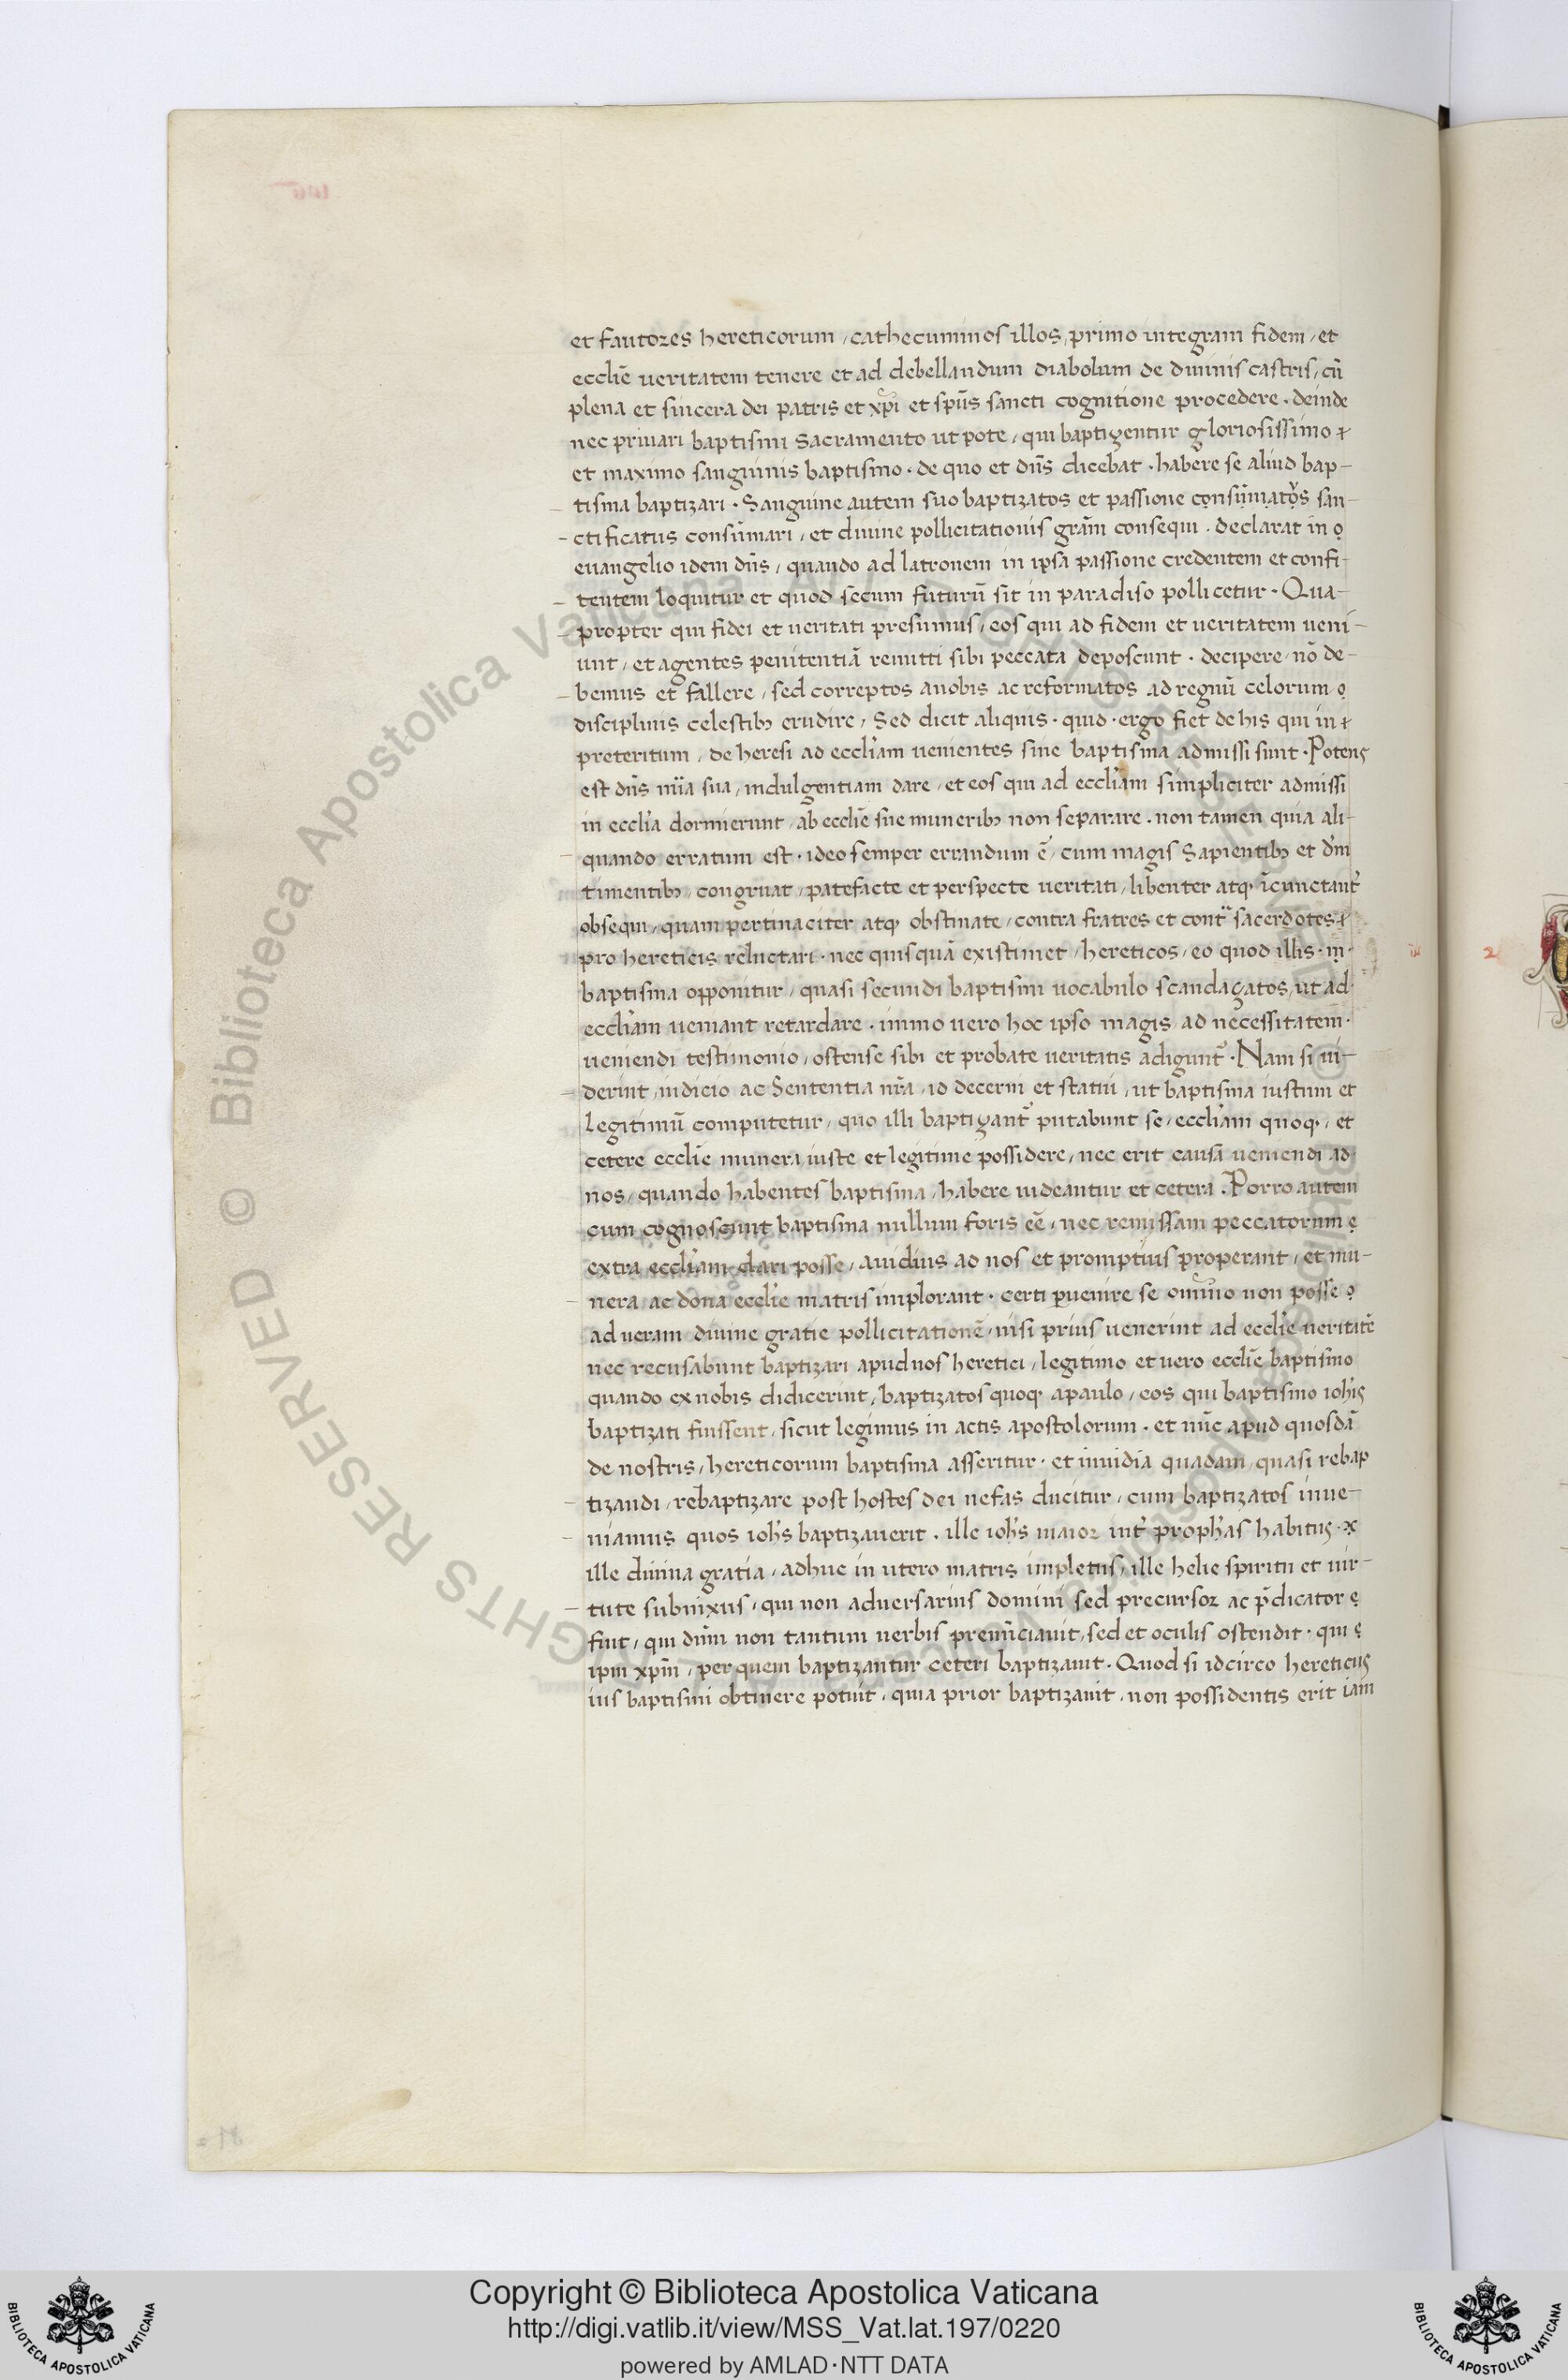 et fautores hereticorum / cathecuminos illos / primo integram fidem / et
eccłie ueritatem tenere et ad debellandum diabolum de diuinis castris / cū
plena et sincera dei patris et xp̄i et sp̄us sancti cognitione procedere . deinde
nec priuari baptismi Sacramento ut pote / qui baptizentur gloriosissimo
et maximo sanguinis baptismo . de quo et dn̄s dicebat . habere se aliud bap-
tisma baptizari . Sanguine autem suo baptizatos et passione consūmatos san-
ctificatus consūmari / et diuine pollicitationis grām consequi . declarat in
euangelio idem dn̄s / quando ad latronem in ipsa passione credentem et confi-
tentem loquitur et quod secum futurū sit in paradiso pollicetur . Qua-
propter qui fidei et ueritati presumus / eos qui ad fidem et ueritatem ueni-
unt / et agentes penitentiā remitti sibi peccata deposcunt . decipere / nō de-
bemus et fallere / sed correptos anobis ac reformatos ad regnū celorum
disciplinis celestibꝫ erudire / Sed dicit aliquis . quid . ergo fiet de his qui in
preteritum / de heresi ad eccłiam uenientes sine baptisma admissi sunt . Potens
est dn̄s mīa sua / indulgentiam dare / et eos qui ad eccłiam simpliciter admissi
in eccłia dormierunt / ab eccłie sue muneribꝫ non separare . non tamen quia ali-
quando erratum est . ideo semper errandum ē / cum magis Sapientibꝫ et dm̄
timentibꝫ / congruat / patefacte et perspecte ueritati / libenter atqꝫ īcunctant̉
obsequi / quam pertinaciter atqꝫ obstinate / contra fratres et cont̃ sacerdotes
pro hereticis reluctari . nec quisquā existimet / hereticos / eo quod illis . in
baptisma opponitur / quasi secundi baptismi uocabulo scandaçatos / ut ad
eccłiam ueniant retardare . immo uero hoc ipso magis ad necessitatem
ueniendi testimonio / ostense sibi et probate ueritatis adigunt̉ . Nam si ui-
derint / iudicio ac Sententia nr̄a / id decerni et statui / ut baptisma iustum et
legitimū computetur / quo illi baptizant̉ putabunt se / eccłiam quoqꝫ / et
cetere eccłie munera iuste et legitime possidere / nec erit causā ueniendi ad
nos / quando habentes baptisma / habere uideantur et cetera . Porro autem
cum cognoscunt baptisma nullum foris eē / nec remissam peccatorum
extra eccłiam dari posse / auidius ad nos et promptius properant / et mu-
nera ac dona eccłie matris implorant . certi ꝑuenire se omīno non posse
ad ueram diuine gratie pollicitationē / nisi prius uenerint ad eccłie ueritatē
nec recusabunt baptizari apud nos heretici / legitimo et uero eccłie baptismo
quando ex nobis didicerint / baptizatos quoqꝫ apaulo / eos qui baptismo ioh̄is
baptizati fuissent / sicut legimus in actis apostolorum . et nūc apud quosdā
de nostris / hereticorum baptisma asseritur . et inuidia quadam quasi rebap
tizandi / rebaptizare post hostes dei nefas ducitur / cum baptizatos inue-
niamus quos ioh̄s baptizauerit . ille ioh̄s maior int̉ proph̄as habitus .
ille diuina gratia / adhuc in utero matris impletus / ille helie spiritu et uir-
tute subnixus / qui non aduersarius domini sed precursor ac p̄dicator
fuit / qui dūm non tantum uerbis prenūciauit / sed et oculis ostendit . qui
ipm xp̄m / per quem baptizantur ceteri baptizauit . Quod si idcirco hereticus
ius baptismi obtinere potuit / quia prior baptizauit . non possidentis erit iam
Copyright © Biblioteca Apostolica Vaticana
http://digi.vatlib.it/view/MSS_Vat.lat.197/0220
powered by AMLAD·NTT DATA